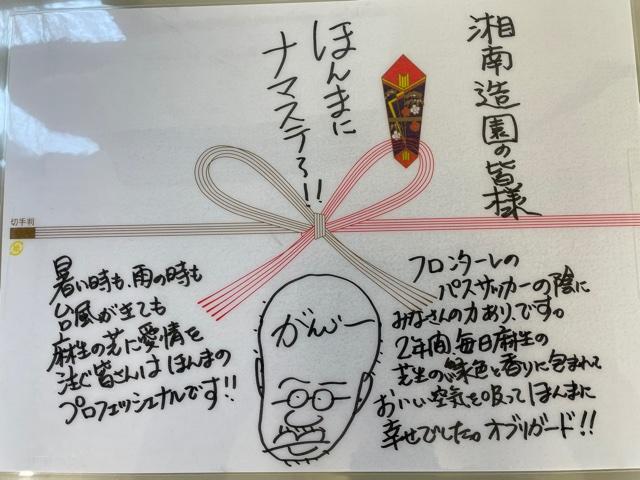 湘南造園の皆様
ほんまに
ナマステう!!
切手判
フロンターレの
パスサッカーの陰に
みなさんの力あり、です。
2年間、毎日麻生の
芝生の緑色と香りに包まれて
おいしい空気を吸ってほんまに
幸せでした。オブリガード!!
がんじー
暑い時も、雨の時も
台風がきても
麻生の芝に愛情を
注ぐ皆さんはほんまの
プロフェッショナルです!!